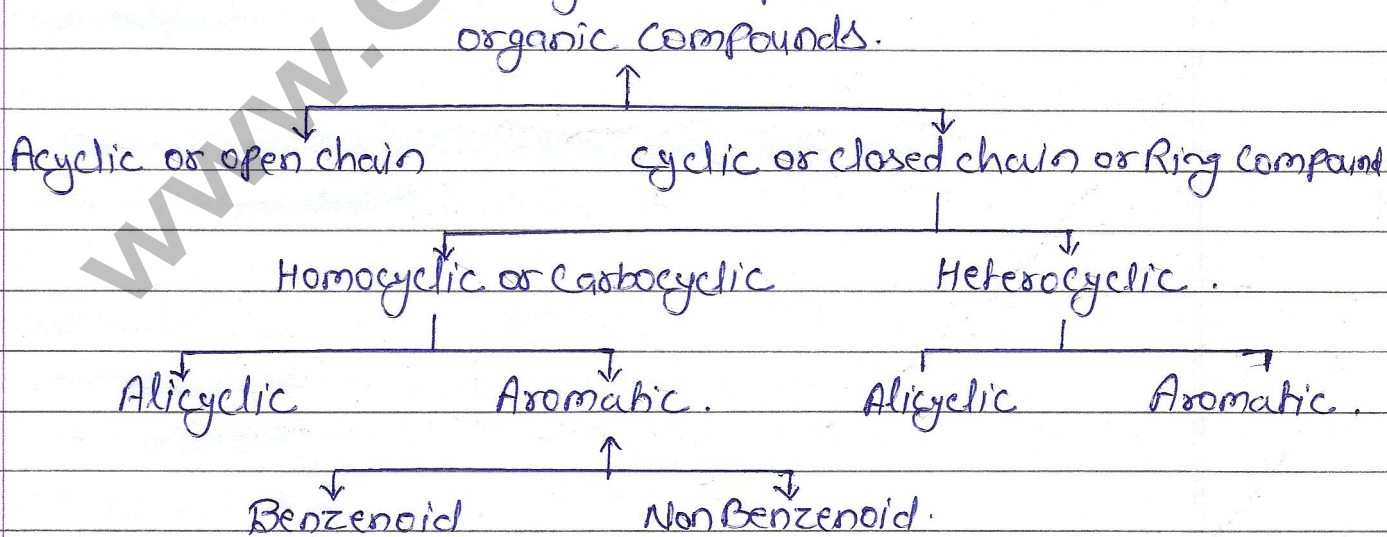 organic compounds.
Acyclic or open chain cyclic or closed chain or Ring compound
Homocyclic or Carbocyclic Heterocyclic.
Alicyclic Aromatic. Alicyclic Aromatic.
Benzenoid Non Benzenoid.
www.